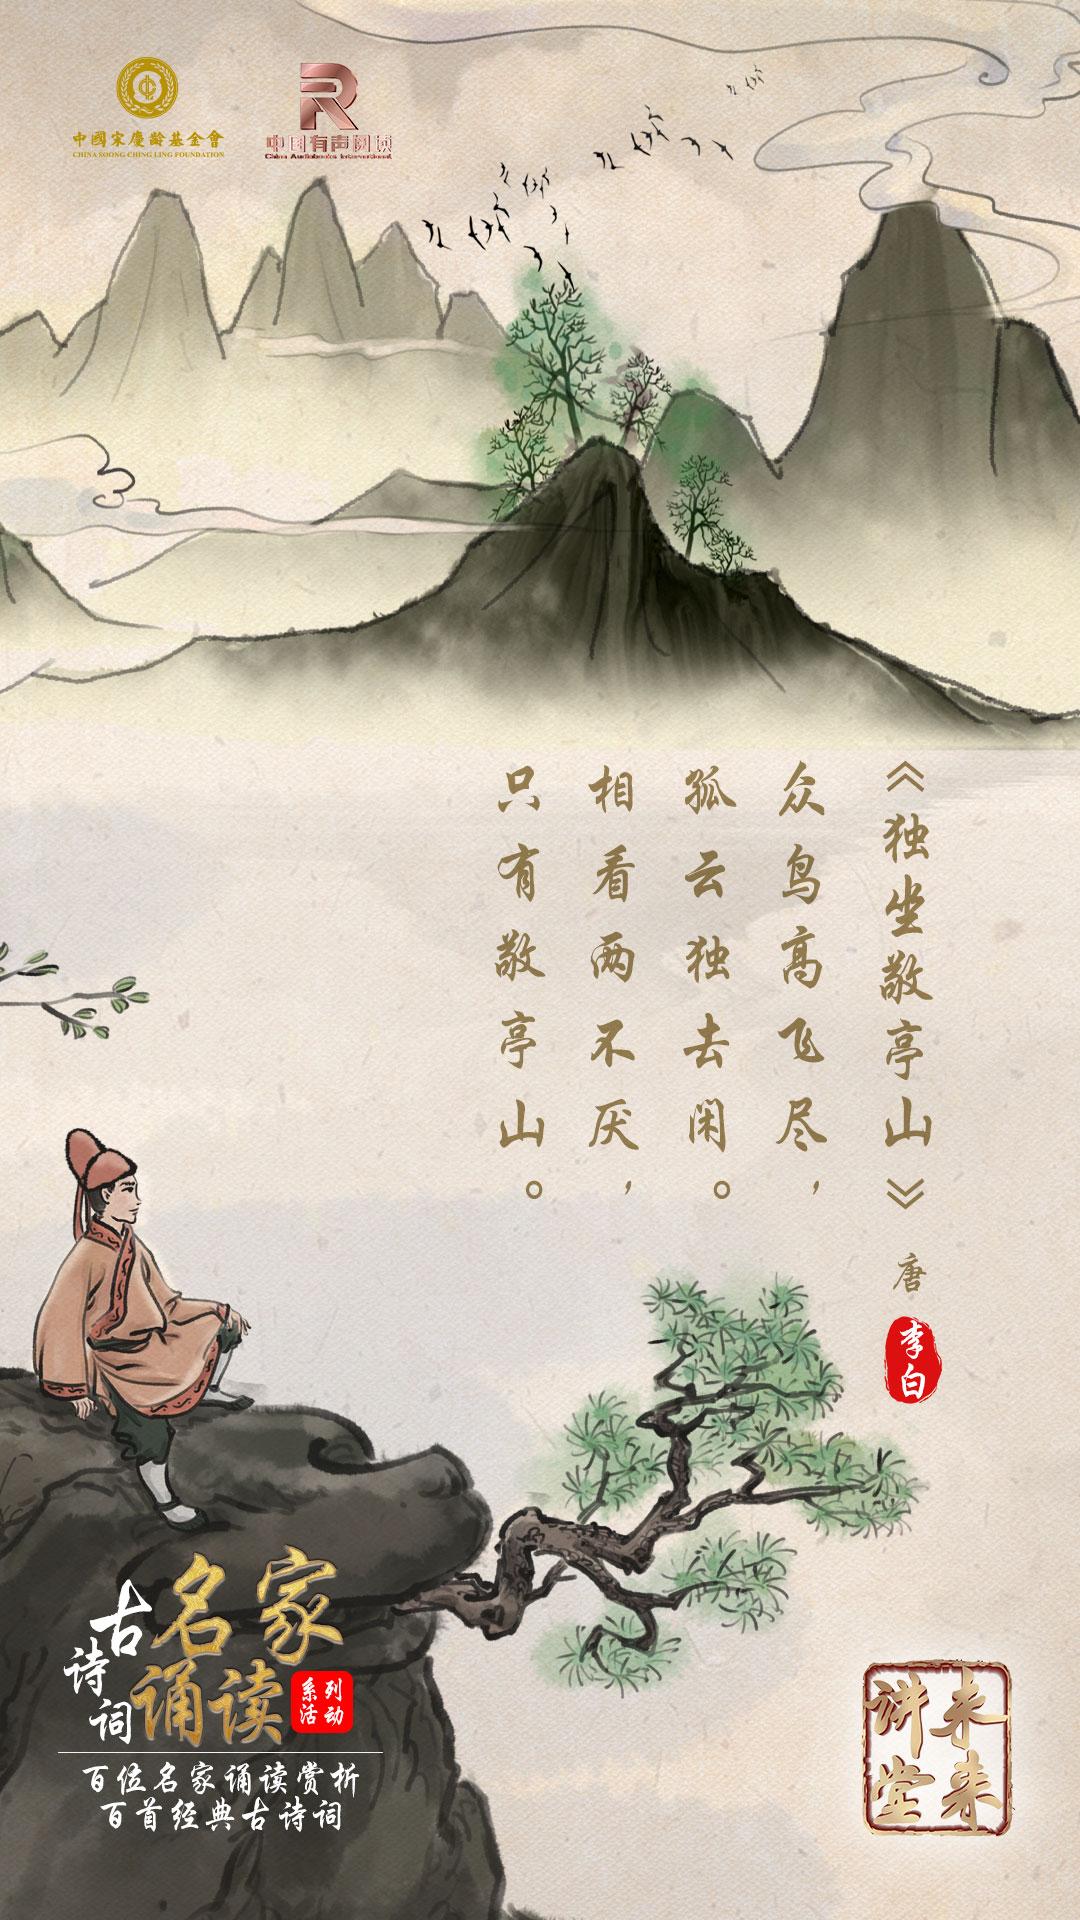 中國宋慶齡基金會
CHINA SOONG CHING LING FOUNDATION
中国有声阅读
China Audiobooks International
《独坐敬亭山》
唐
李白
众鸟高飞尽，
孤云独去闲。
相看两不厌，
只有敬亭山。
古诗词
名家
诵读
系列
活动
百位名家诵读赏析
百首经典古诗词
未来
讲堂